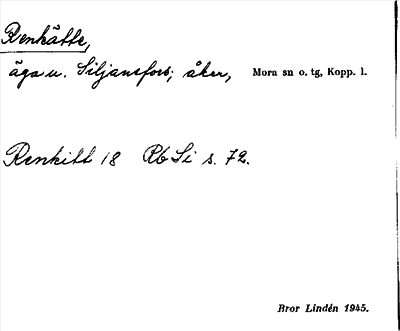 Renhätte,
äga u. Siljansfors; åker, Mora sn o. tg, Kopp. l.
Renhitt 18 Rb Si s. 72.
Bror Lindén 1945.